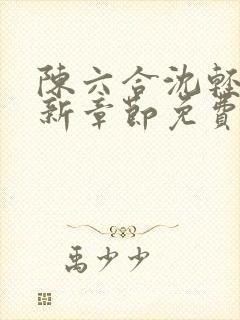 陳六合沈輕
新章節免費
禹少少